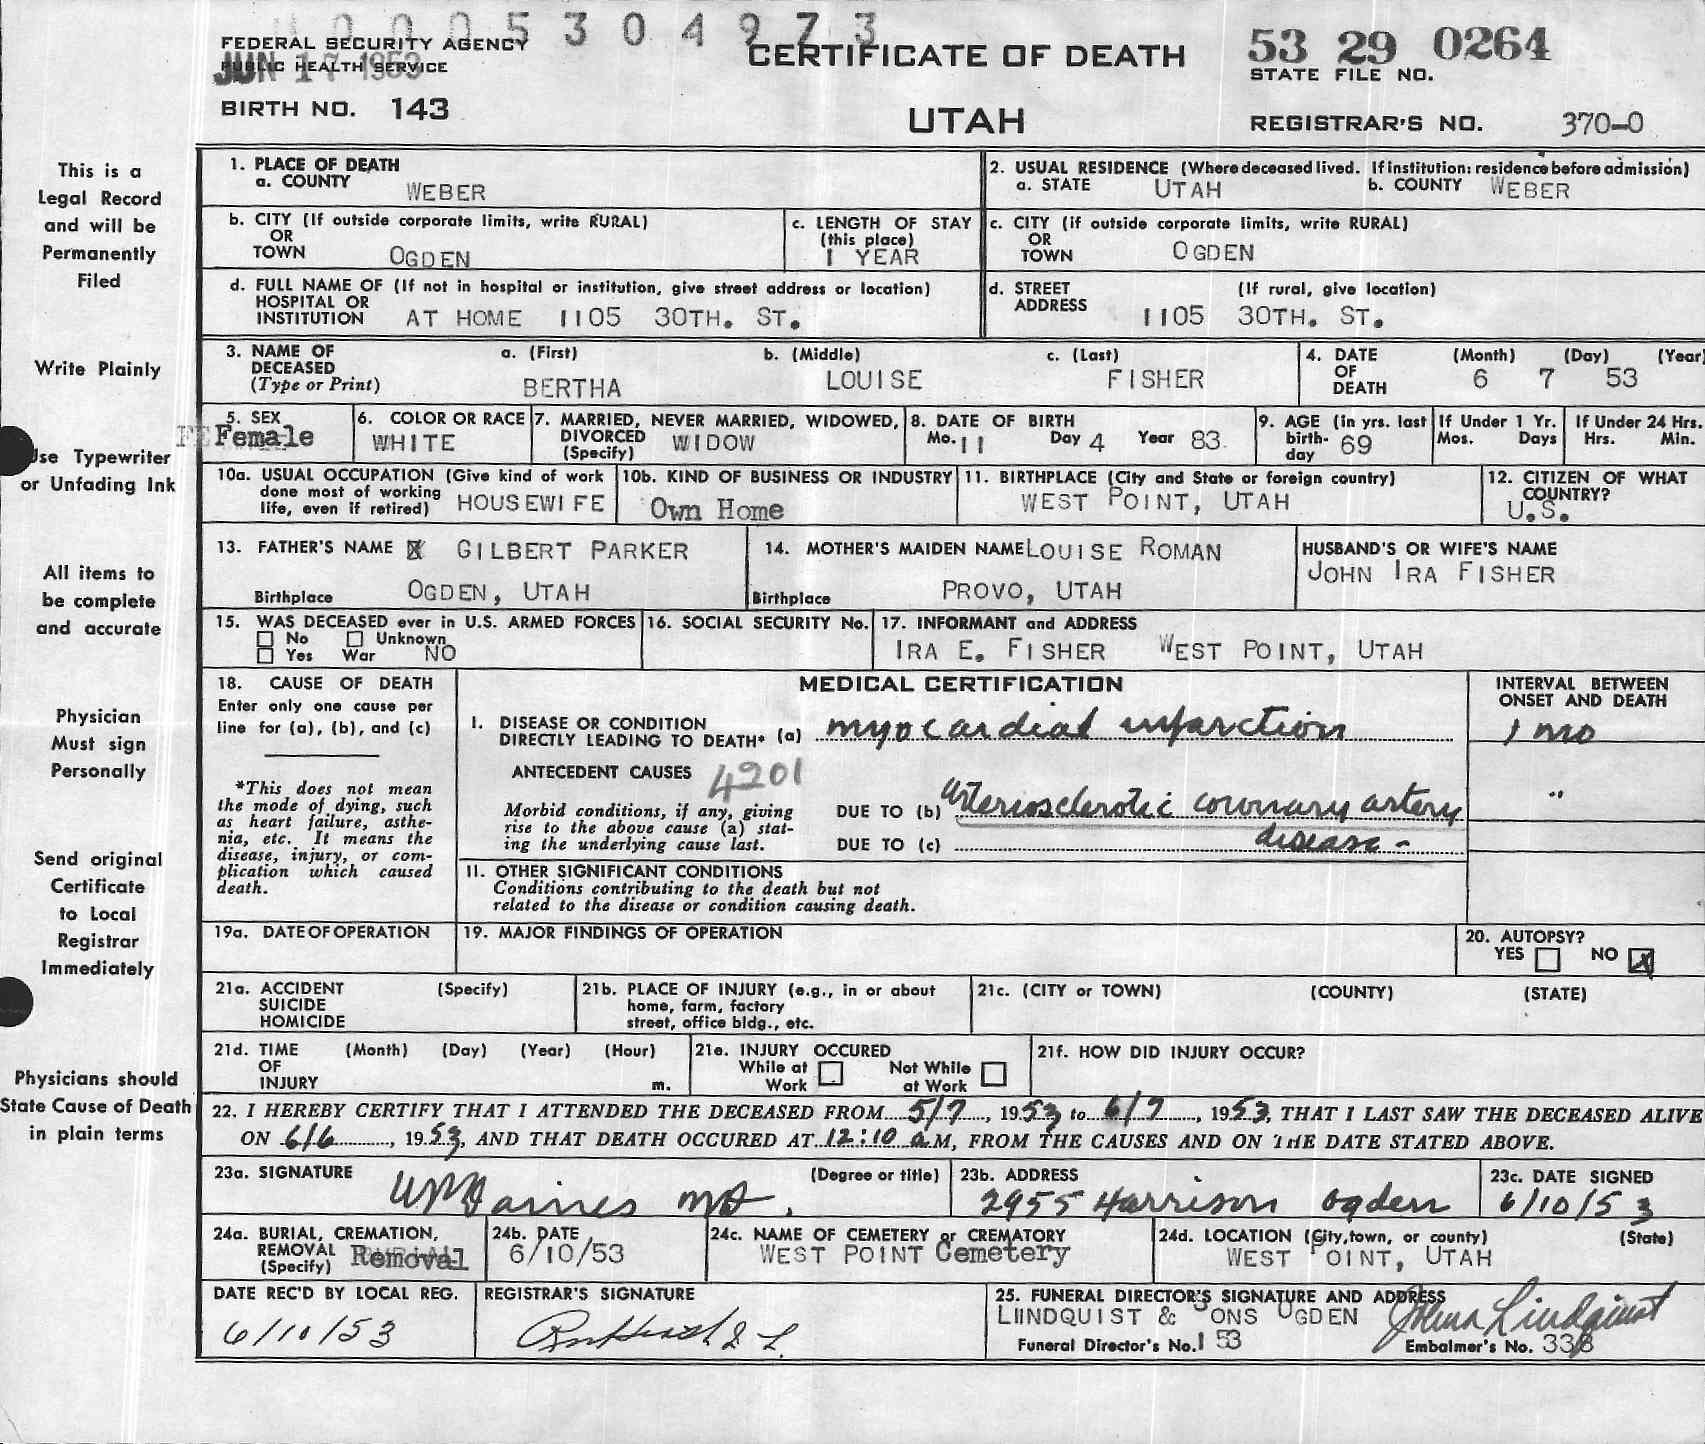 0 0 0 5 3 0 4 9 7 3
FEDERAL SECURITY AGENCY
PUBLIC HEALTH SERVICE
JUN 17 1953
BIRTH NO. 143
CERTIFICATE OF DEATH
UTAH
53 29 0264
STATE FILE NO.
REGISTRAR'S NO. 370-0
This is a
Legal Record
and will be
Permanently
Filed
Write Plainly
Use Typewriter
or Unfading Ink
All items to
be complete
and accurate
Physician
Must sign
Personally
Send original
Certificate
to Local
Registrar
Immediately
Physicians should
State Cause of Death
in plain terms
1. PLACE OF DEATH
a. COUNTY WEBER
2. USUAL RESIDENCE (Where deceased lived. If institution: residence before admission)
a. STATE UTAH b. COUNTY WEBER
b. CITY (If outside corporate limits, write RURAL)
OR
TOWN OGDEN
c. LENGTH OF STAY
(this place)
1 YEAR
c. CITY (if outside corporate limits, write RURAL)
OR
TOWN OGDEN
d. FULL NAME OF (If not in hospital or institution, give street address or location)
HOSPITAL OR
INSTITUTION AT HOME 1105 30TH. ST.
d. STREET (If rural, give location)
ADDRESS 1105 30TH. ST.
3. NAME OF a. (First) b. (Middle) c. (Last)
DECEASED
(Type or Print) BERTHA LOUISE FISHER
4. DATE (Month) (Day) (Year)
OF 6 7 53
DEATH
5. SEX
Female
6. COLOR OR RACE
WHITE
7. MARRIED, NEVER MARRIED, WIDOWED,
DIVORCED
(Specify) WIDOW
8. DATE OF BIRTH
Mo. 11 Day 4 Year 83
9. AGE (in yrs. last
birth-
day 69
If Under 1 Yr.
Mos. Days
If Under 24 Hrs.
Hrs. Min.
10a. USUAL OCCUPATION (Give kind of work
done most of working
life, even if retired) HOUSEWIFE
10b. KIND OF BUSINESS OR INDUSTRY
Own Home
11. BIRTHPLACE (City and State or foreign country)
WEST POINT, UTAH
12. CITIZEN OF WHAT
COUNTRY?
U.S.
13. FATHER'S NAME X GILBERT PARKER
Birthplace OGDEN, UTAH
14. MOTHER'S MAIDEN NAME LOUISE ROMAN
Birthplace PROVO, UTAH
HUSBAND'S OR WIFE'S NAME
JOHN IRA FISHER
15. WAS DECEASED ever in U.S. ARMED FORCES
No Unknown
Yes War NO
16. SOCIAL SECURITY No.
17. INFORMANT and ADDRESS
IRA E. FISHER WEST POINT, UTAH
18. CAUSE OF DEATH
Enter only one cause per
line for (a), (b), and (c)
*This does not mean
the mode of dying, such
as heart failure, asthe-
nia, etc. It means the
disease, injury, or com-
plication which caused
death.
MEDICAL CERTIFICATION
I. DISEASE OR CONDITION
DIRECTLY LEADING TO DEATH* (a) myocardial infarction
ANTECEDENT CAUSES 4201
Morbid conditions, if any, giving
rise to the above cause (a) stat-
ing the underlying cause last.
DUE TO (b) arteriosclerotic coronary artery
DUE TO (c) disease -
INTERVAL BETWEEN
ONSET AND DEATH
1 mo
"
11. OTHER SIGNIFICANT CONDITIONS
Conditions contributing to the death but not
related to the disease or condition causing death.
19a. DATE OF OPERATION
19. MAJOR FINDINGS OF OPERATION
20. AUTOPSY?
YES NO X
21a. ACCIDENT (Specify)
SUICIDE
HOMICIDE
21b. PLACE OF INJURY (e.g., in or about
home, farm, factory
street, office bldg., etc.
21c. (CITY or TOWN) (COUNTY) (STATE)
21d. TIME (Month) (Day) (Year) (Hour)
OF
INJURY m.
21e. INJURY OCCURED
While at Not While
Work at Work
21f. HOW DID INJURY OCCUR?
22. I HEREBY CERTIFY THAT I ATTENDED THE DECEASED FROM 5/7, 1953 to 6/7, 1953, THAT I LAST SAW THE DECEASED ALIVE
ON 6/6, 1953, AND THAT DEATH OCCURED AT 12:10 a.M, FROM THE CAUSES AND ON THE DATE STATED ABOVE.
23a. SIGNATURE (Degree or title)
MD.
23b. ADDRESS
2955 Harrison Ogden
23c. DATE SIGNED
6/10/53
24a. BURIAL, CREMATION,
REMOVAL
(Specify) Removal
24b. DATE
6/10/53
24c. NAME OF CEMETERY or CREMATORY
WEST POINT Cemetery
24d. LOCATION (City, town, or county) (State)
WEST OINT, UTAH
DATE REC'D BY LOCAL REG.
6/10/53
REGISTRAR'S SIGNATURE
25. FUNERAL DIRECTOR'S SIGNATURE AND ADDRESS
LINDQUIST & ONS OGDEN Lindquist
Funeral Director's No. 153 Embalmer's No. 338